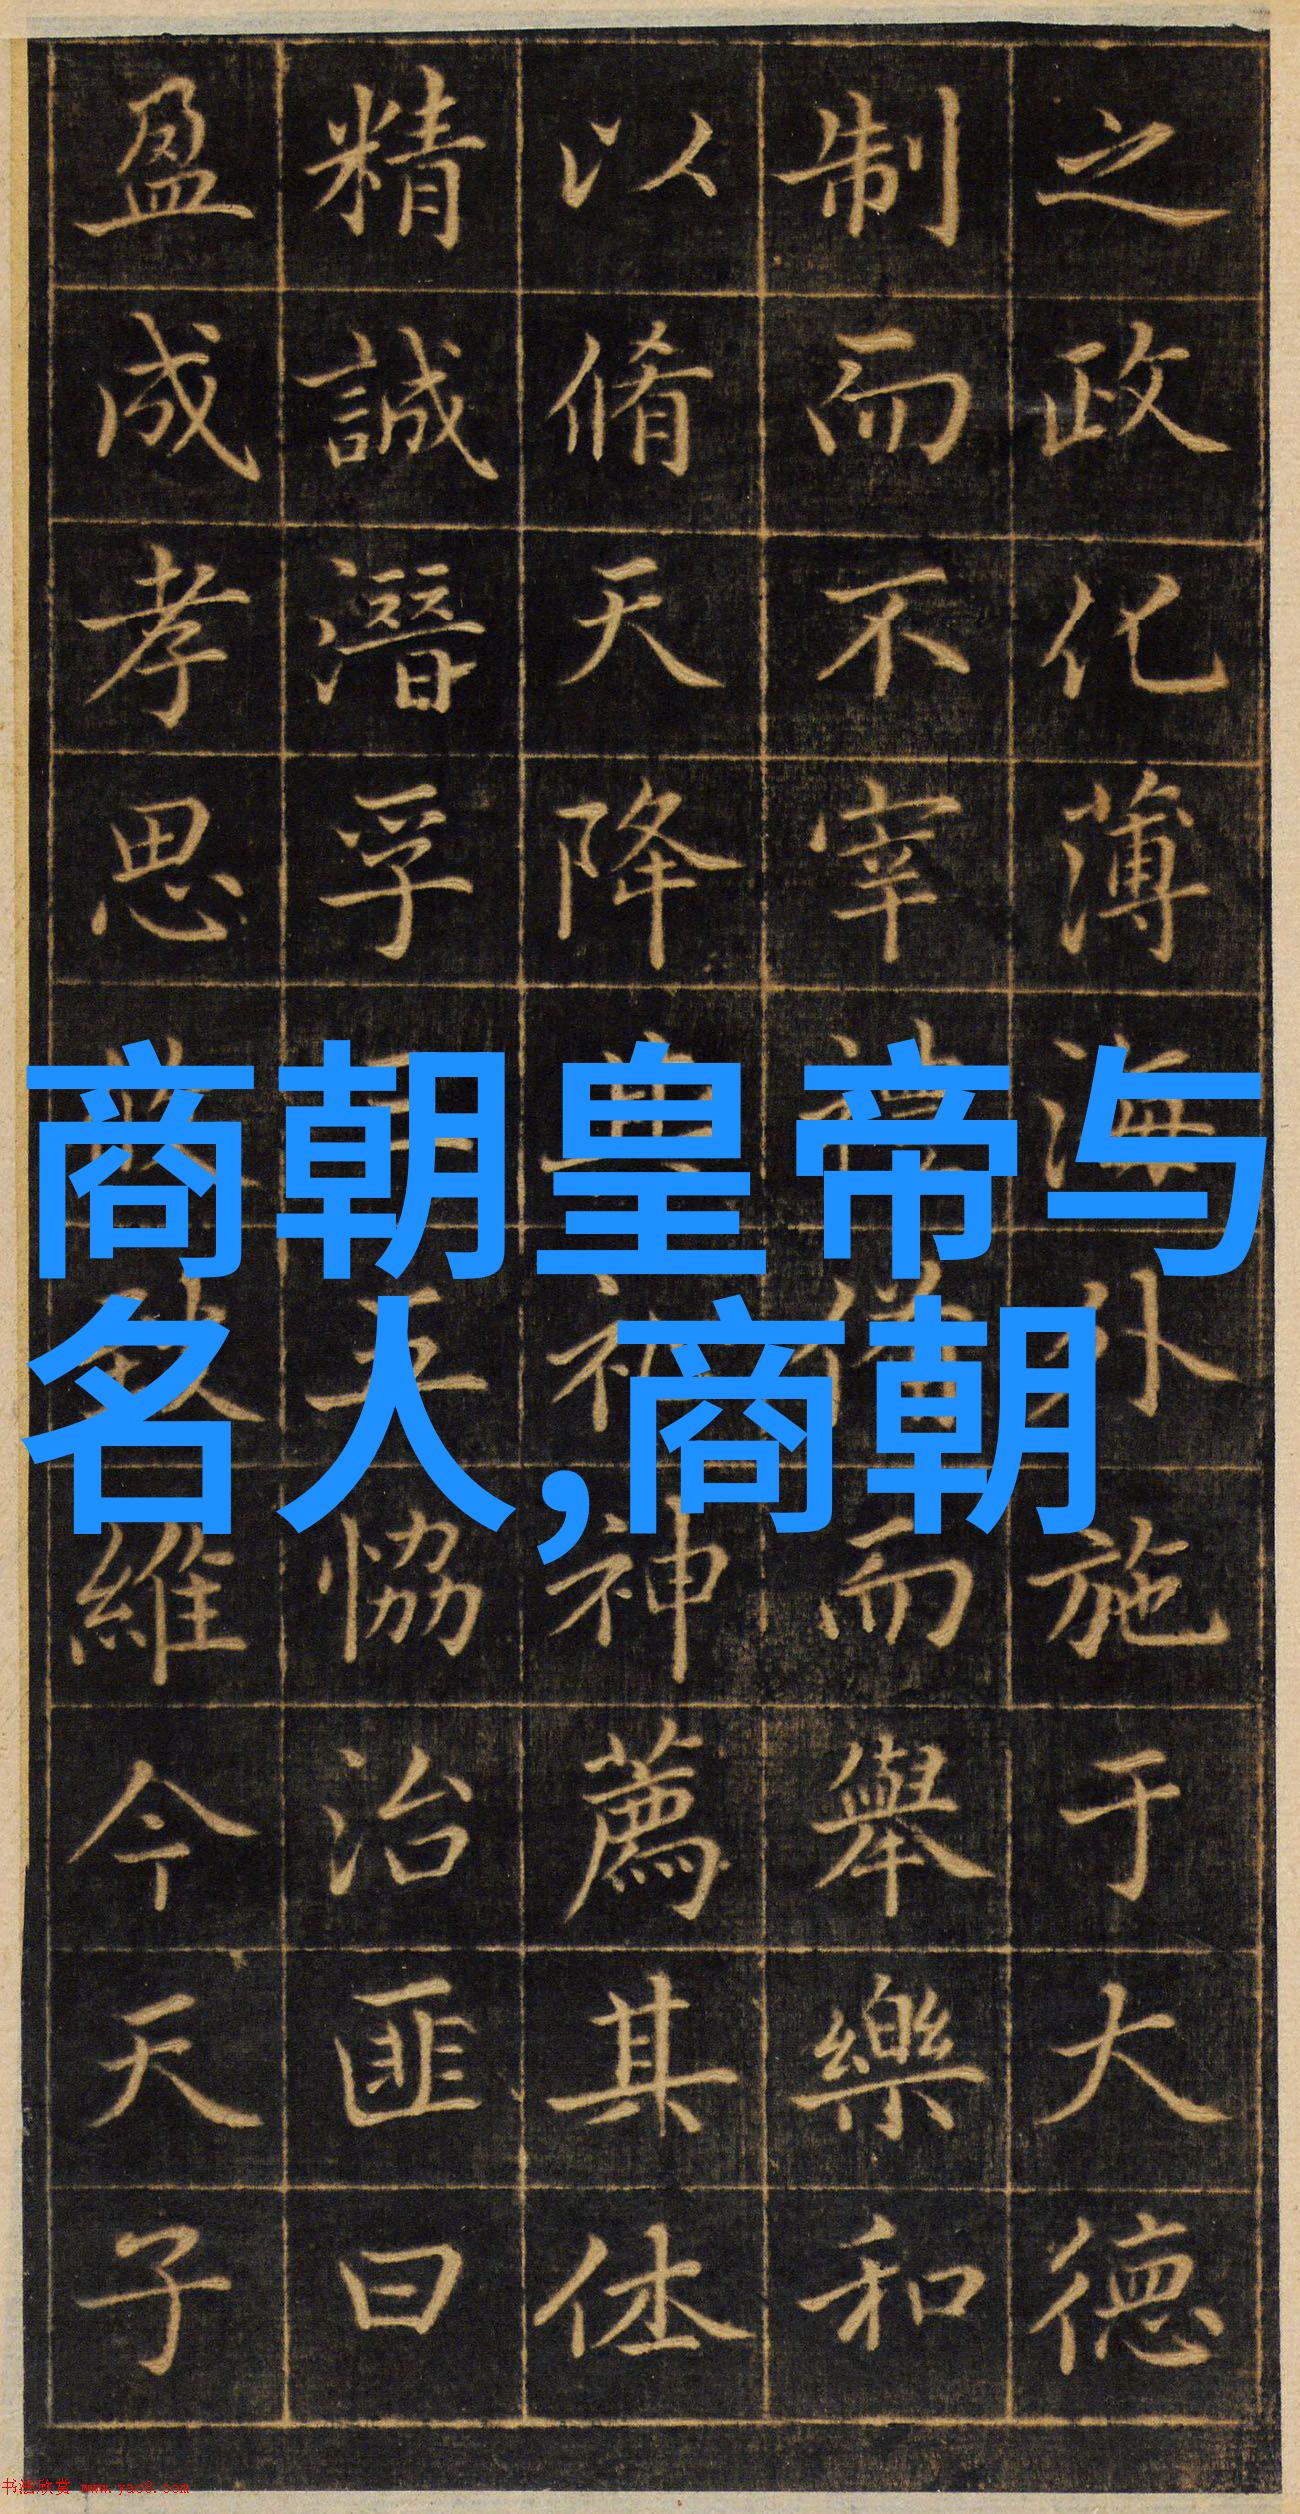 之政化薄海外施于大德
制而不宰禮備而舉樂和
以脩天降神薦其休
精誠潛孚恊治匪曰
盈成孝思維今天子
商朝皇帝与
名人,商朝
书法欣赏 www.yac8.com